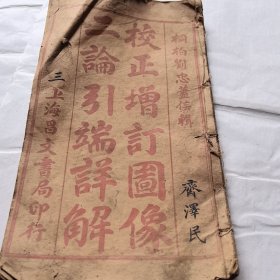 桐柏劉忠輯
校正增訂圖像
二論引端詳解
三 上海昌文書局印行
齊澤民